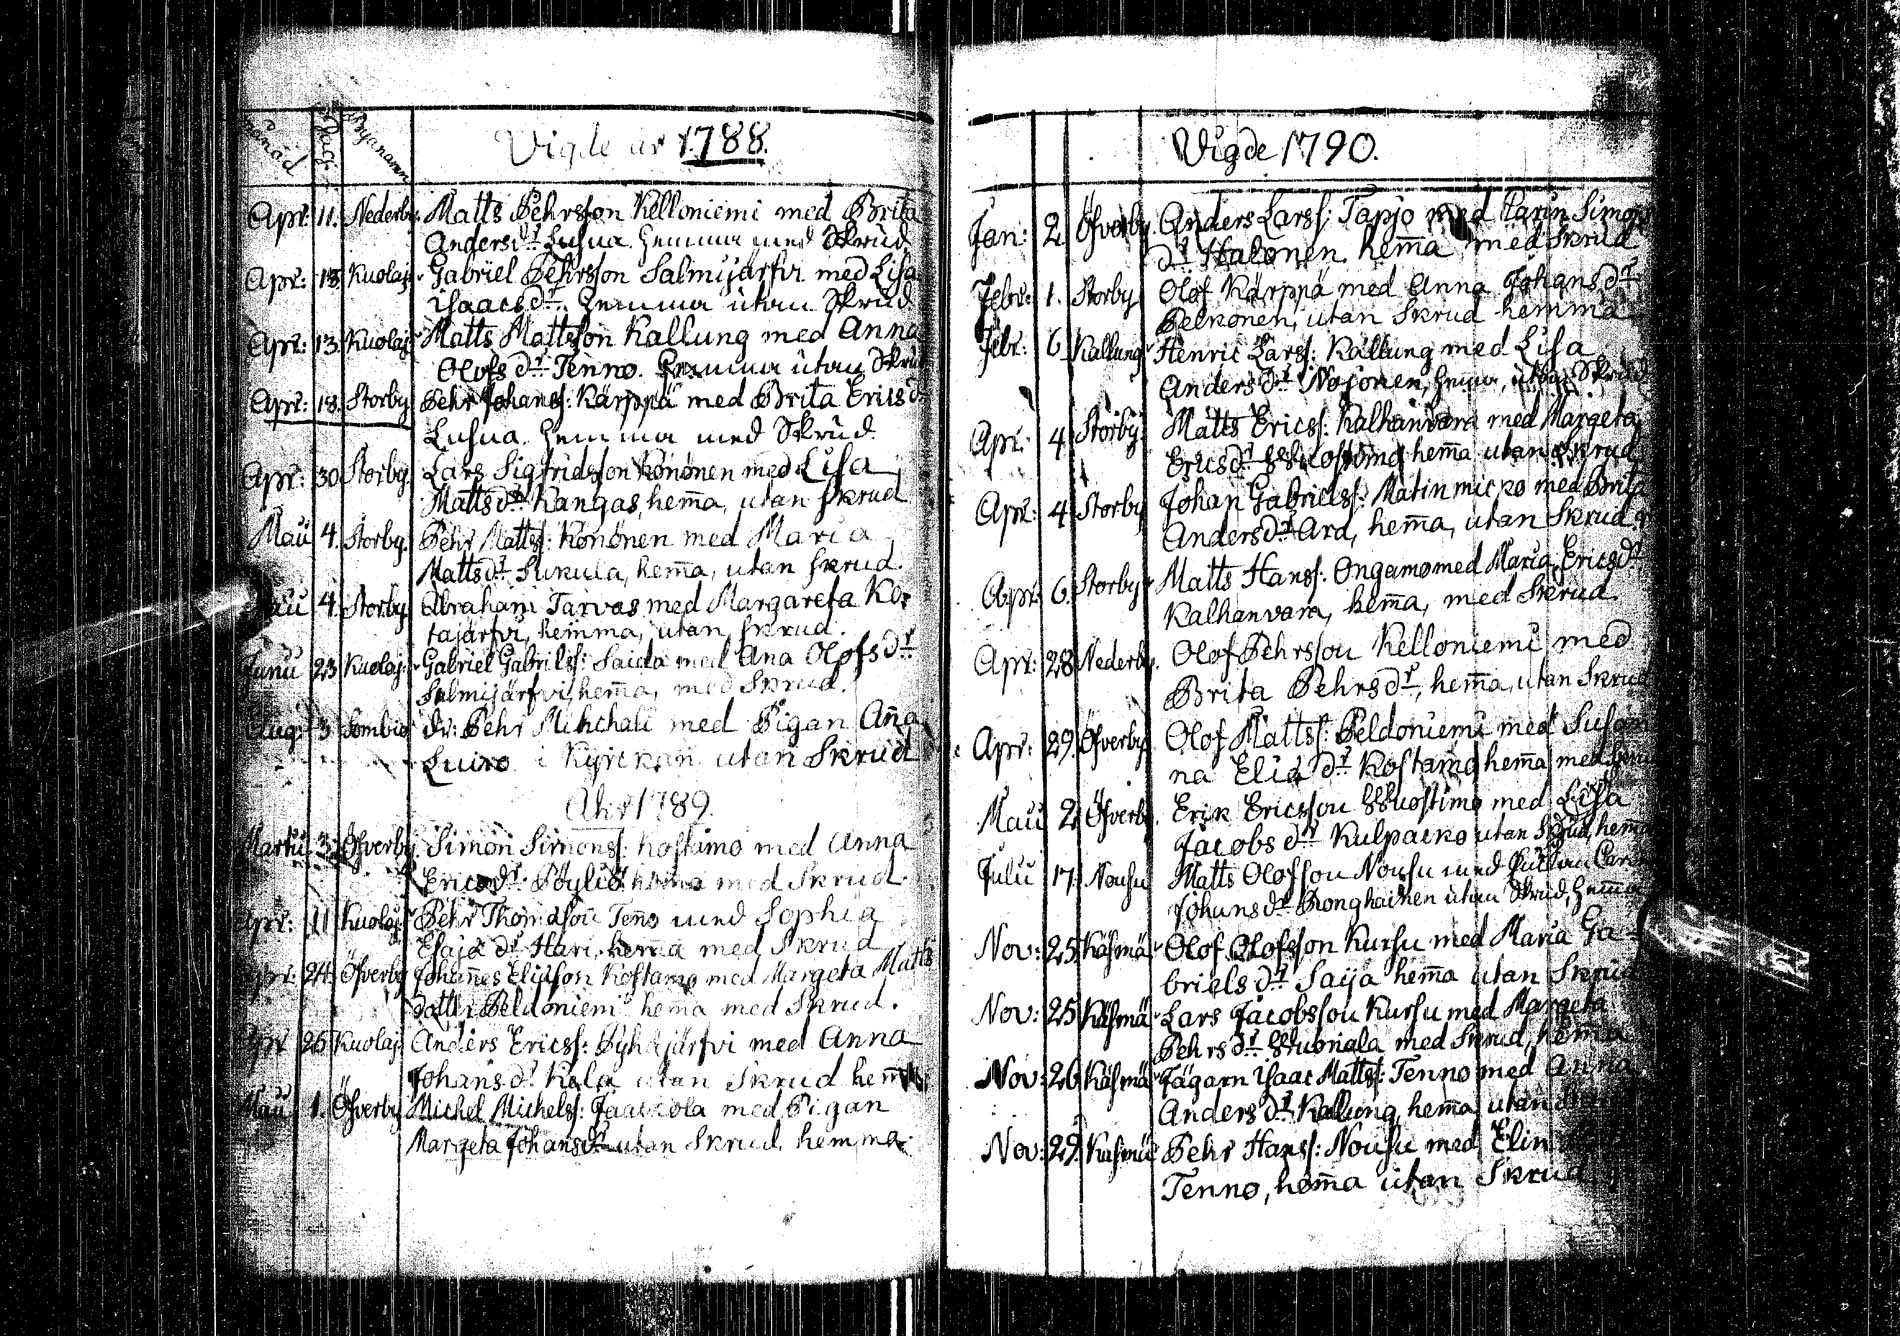 Månad Dag Byanamn
Vigde år 1788.
Apr: 11. Nederby. Matts Pehrsson Kelloniemi med Brita
Andersdr Lusua hemma med Skrud
Apr: 13. Kuolaj. Gabriel Pehrsson Salmijärfvi med Lisa
Isaacsdr. hemma utan Skrud
Apr: 13. Kuolaj. Matts Mattsson Kallung med Anna
Olofsdr Tenno. hemma utan Skrud
Apr: 18. Storby Pehr Johanss: Kärppä med Brita Ericsdr
Lusua. hemma med Skrud.
Apr: 30 Storby. Lars Sigfridsson Kononen med Lisa
Mattsdr Kangas, hem̄a, utan skrud
Maii 4. Storby. Pehr Mattss: Kononen med Maria
Mattsdr Sukula, hem̄a, utan skrud.
Maii 4. Storby Abraham Tarvas med Margareta Ko-
tajärfvi, hemma, utan skrud.
Junii 23 Kuolaj. Gabriel Gabrielss: Saida med Ana Olofsdr
Salmijärfvi, hem̄a, med Skrud.
Aug: 3 Sombio dr: Pehr Mihchali med Pigan An̄a
Luiro i Kyrckan utan Skrud
Ahr 1789.
Martii 3. Öfverby Simon Simonss: Kostamo med Anna
Ericsdr Pöyliö hem̄a med Skrud
Apr: 11 Kuolaj. Pehr Thomasson Ten̄o med Sophia
Esajædr Hari, hem̄a med Skrud
Apr: 24. Öfverby Johannes Eliæson Kostamo med Margeta Matts
dotter Peldoniemi hem̄a med Skrud.
Apr 26. Kuolaj. Anders Ericss: Pyhäjärfvi med Anna
Johansdr Kola utan Skrud hem̄a
Maii 1. Öfverby Michel Michelss: Jaackola med Pigan
Margeta Johansdr utan Skrud hemma.
Vigde 1790.
Jan: 2. Öfverby. Anders Larss: Tapjo med Carin Simons
dr Halonen. hem̄a med Skrud
Febr: 1. Storby Olof Kärppä med Anna Johansdr
Pelkonen, utan Skrud hemma
Febr: 6 Kallung Henric Larss: Kallung med Lisa
Andersdr Nosonen, hem̄a, utan Skrud
Apr: 4 Storby. Matts Ericss: Kalhanvara med Margeta
Ericsdr hem̄a utan Skrud
Apr: 4 Storby Johan Gabrielss: Matinmicko med Brita
Andersdr Ard, hem̄a, utan Skrud.
Apr: 6. Storby Matts Hanss: Ongamo med Maria Ericsdr
Kalhanvara, hem̄a, med Skrud.
Apr: 28 Nederby. Olof Pehrsson Kelloniemi med
Brita Pehrsdr, hem̄a, utan Skrud
Apr: 29. Öfverby. Olof Mattss: Peldoniemi med Susan
na Eliædr Kostamo hem̄a med Skrud
Maii 2. Öfverby. Erik Ericsson med Lisa
Jacobsdr Kulpacko utan Skrud, hem̄a
Julii 17. Nousu Matts Olofsson Nousu med
Johansdr Pronghainen utan Skrud, hem̄a
Nov: 25. Käsmä Olof Olofsson Kursu med Maria Ga-
brielsdr Saija hem̄a utan Skrud
Nov: 25. Käsmä Lars Jacobsson Kursu med Margeta
Pehrsdr med Skrud, hem̄a
Nov: 26. Käsmä Jägarn Isaac Mattss: Tenno med Anna
Andersdr Kallung, hem̄a utan Skrud
Nov: 29. Käsmä Pehr Hanss: Nousu med Elin
Tenno, hem̄a utan Skrud